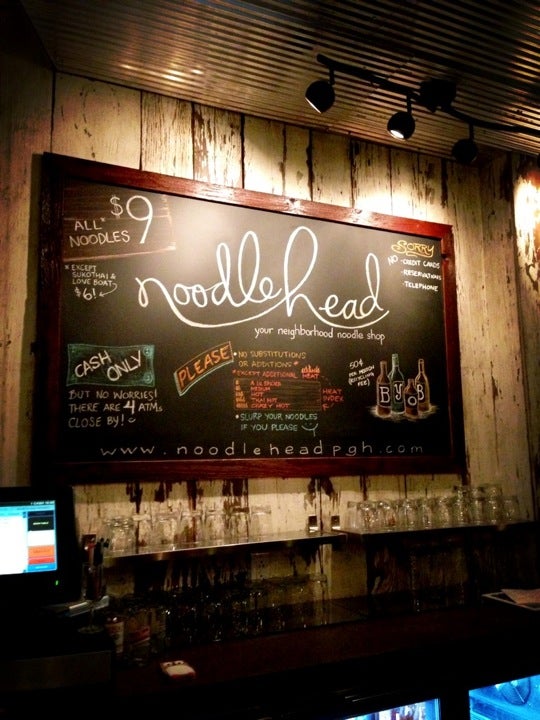 $9
ALL*
NOODLES
*EXCEPT
SUKOTHAI &
LOVE BOAT,
$6!
noodlehead
your neighborhood noodle shop
SORRY
NO •CREDIT CARDS
•RESERVATIONS
•TELEPHONE
CASH
ONLY
BUT NO WORRIES!
THERE ARE 4 ATMs
CLOSE BY!
PLEASE
•NO SUBSTITUTIONS
OR ADDITIONS*
*EXCEPT ADDITIONAL
HEAT
MEDIUM
HOT
THAI HOT
CRAZY HOT
HEAT
INDEX
•SLURP YOUR NOODLES
IF YOU PLEASE
50¢
PER PERSON
(RECYCLING
FEE)
BYOB
www.noodleheadpgh.com